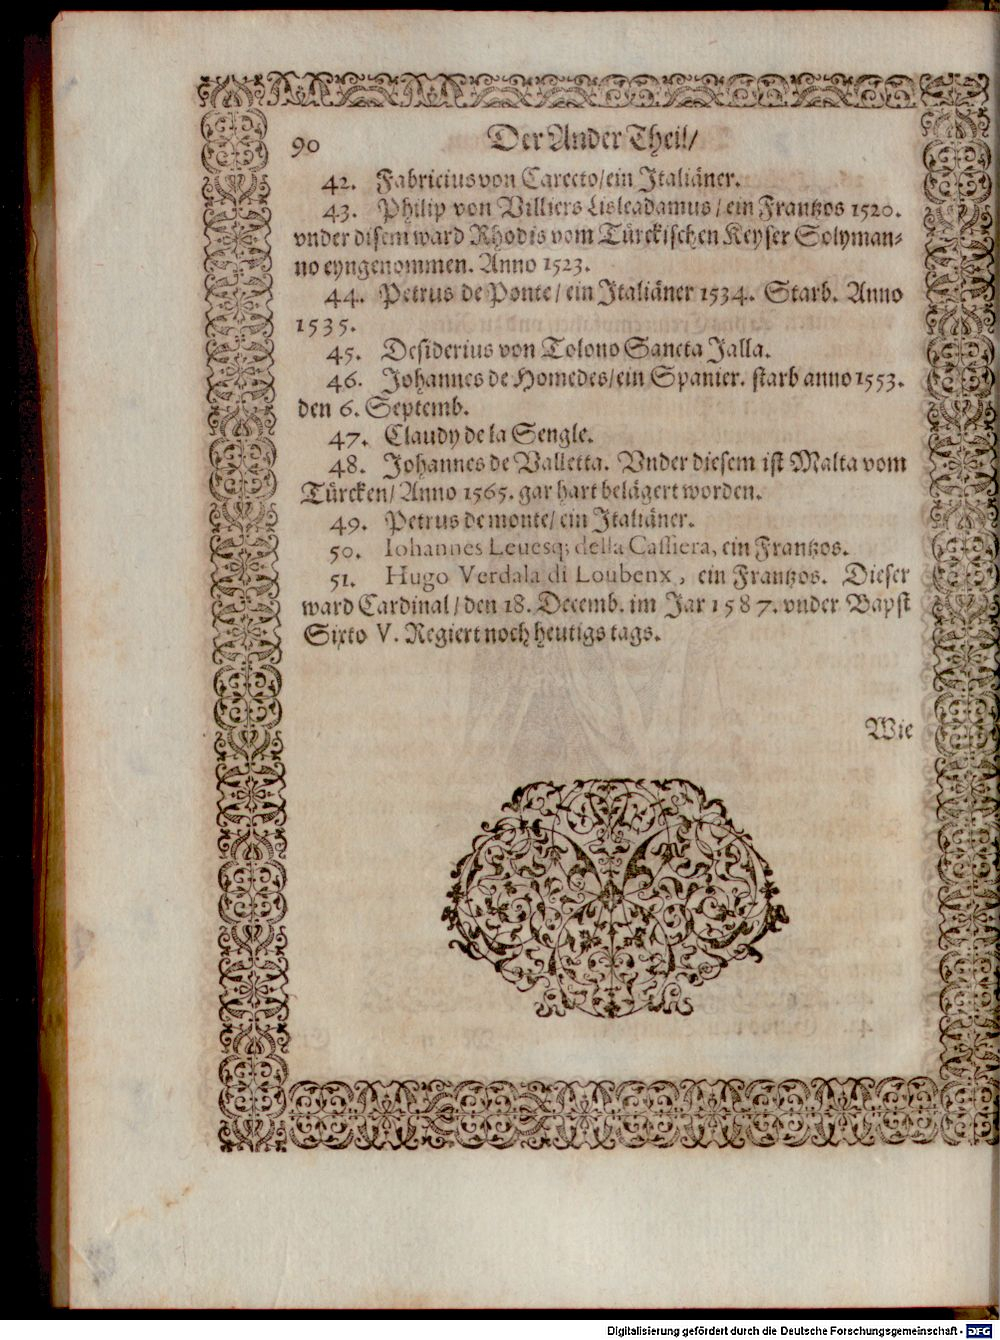 90 Der Ander Theil/
42. Fabricius von Carecto/ein Italiäner.
43. Philip von Villiers Lisleadamus/ein Frantzos 1520.
vnder disem ward Rhodis vom Türckischen Keyser Solyman-
no eyngenommen. Anno 1523.
44. Petrus de Ponte/ein Italiäner 1534. Starb. Anno
1535.
45. Desiderius von Tolono Sancta Jalla.
46. Johannes de Homedes/ein Spanier. starb anno 1553.
den 6. Septemb.
47. Claudy de la Sengle.
48. Johannes de Valletta. Vnder diesem ist Malta vom
Türcken/Anno 1565. gar hart belägert worden.
49. Petrus de monte/ein Italiäner.
50. Iohannes Leuesq; della Cassiera, ein Frantzos.
51. Hugo Verdala di Loubenx, ein Frantzos. Dieser
ward Cardinal/den 18. Decemb. im Jar 1587. vnder Bapst
Sixto V. Regiert noch heutigs tags.
Wie
Digitalisierung gefördert durch die Deutsche Forschungsgemeinschaft - DFG